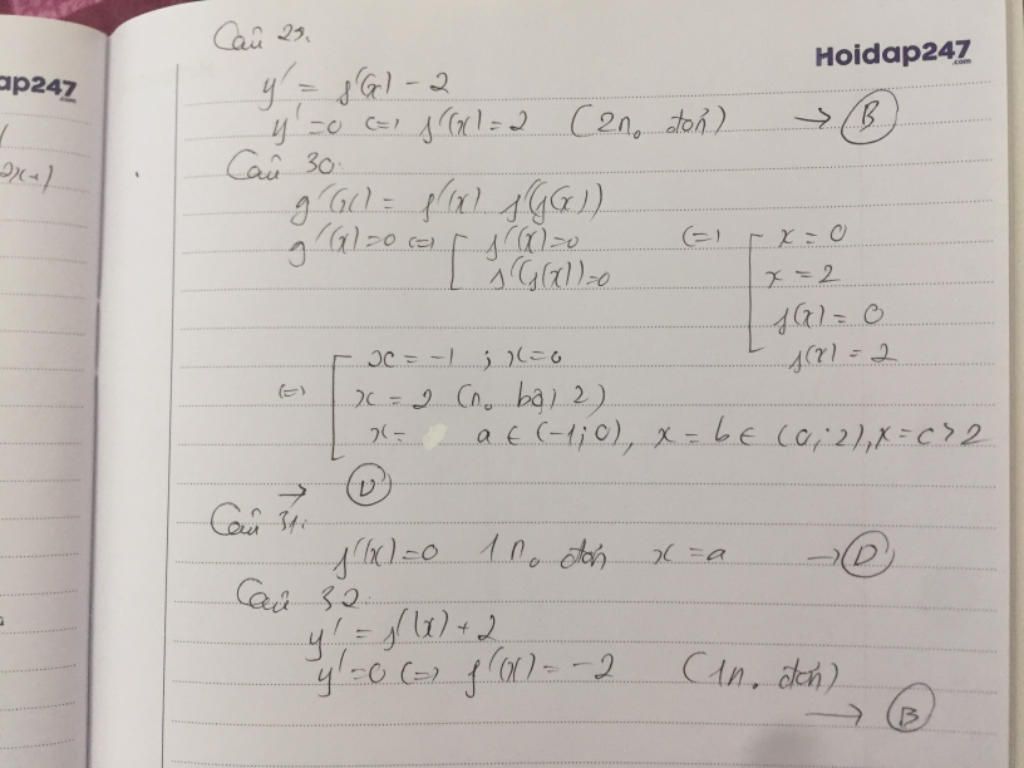 Câu 29.
Hoidap247
.com
ap247
.com
y' = f'(x) - 2
y' = 0 <=> f'(x) = 2 (2 no đơn) → B
Câu 30.
g'(x) = f'(x) f'(f(x))
g'(x) = 0 <=> [ f'(x) = 0 <=> [ x = 0
f'(f(x)) = 0 x = 2
f(x) = 0
f(x) = 2
<=> [ x = -1 ; x = 0
x = 2 (no bội 2)
x = a ∈ (-1; 0), x = b ∈ (0; 2), x = c > 2
→ D
Câu 31.
f'(x) = 0 1 no đơn x = a → D
Câu 32.
y' = f'(x) + 2
y' = 0 <=> f'(x) = -2 (1 no đơn)
→ B